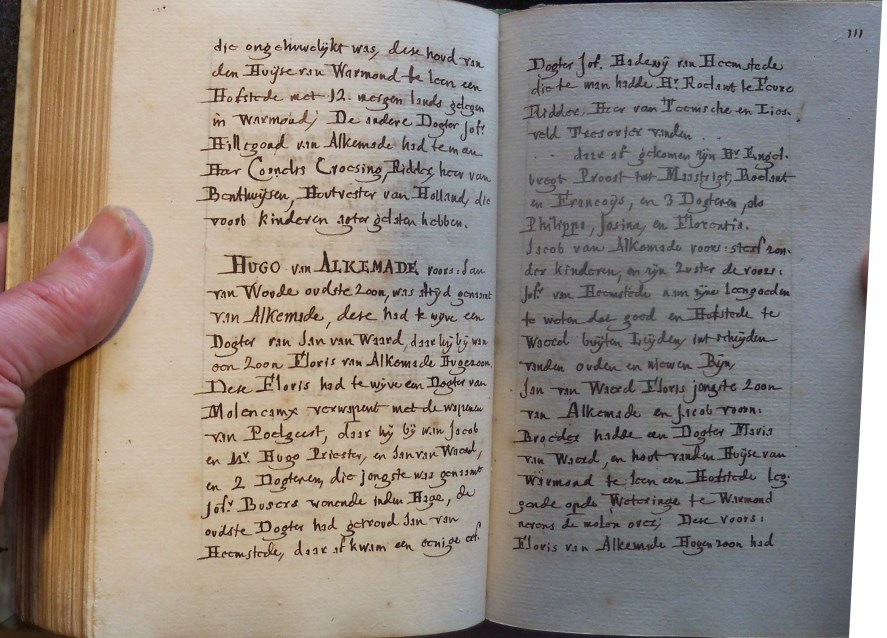 die ongehuwelijkt was, dese houd van
den Huijse van Warmond te leen een
Hofstede met 12. mergen lands gelegen
in Warmond; De andere Dogter Jofr.
Hillegond van Alkemade had te man
Heer Cornelis Croesing, Ridder, heer van
Benthuijsen, Houtvester van Holland, die
voors kinderen agter gelaten hebben.
HUGO van ALKEMADE, voors: Jan
van Woude oudste zoon, was altijd genaamt
van Alkemade, dese had te wijve een
Dogter van Jan van Waard, daar hij bij wan
een zoon Floris van Alkemade Hugezoon.
Dese Floris had te wijve een Dogter van
Molencamx verwapent met de wapenen
van Poelgeest, daar hij bij wan Jacob
en Mr. Hugo Priester, en Jan van Waerd,
en 2 Dogteren, die jongste was genaamt
Jofr. Busers wonende inden Hage, de
oudste Dogter had getroud Jan van
Heemstede, daar af kwam een eenige
111
Dogter Jof. Hadewij van Heemstede
die te man hadde Hr. Roelant le Fevre
Ridder, Heer van Teemsche en Lies-
veld Tresorier vanden . .
. . daar af gekomen zijn Hr. Engel-
bregt Proost tot Maastrigt, Roelant
en Francoijs, en 3 Dogteren, als
Philippa, Josina, en Florentia.
Jacob van Alkemade voors: sterf zon-
der kinderen, en zijn zuster de voors:
Jofr. van Heemstede nam zijne leengoeden
te weten dat goed en Hofstede te
Waerd buijten Leijden int scheijden
vanden ouden en nieuwen Rijn,
Jan van Waerd Floris jongste zoon
van Alkemade en Jacob voorn:
Broeder hadde een Dogter Maria
van Waerd, en hout vanden Huijse van
Warmond te leen een Hofstede leg-
gende opde Weteringe te Warmond
nevens de molen over; Dese voors:
Floris van Alkemade Hugenzoon had